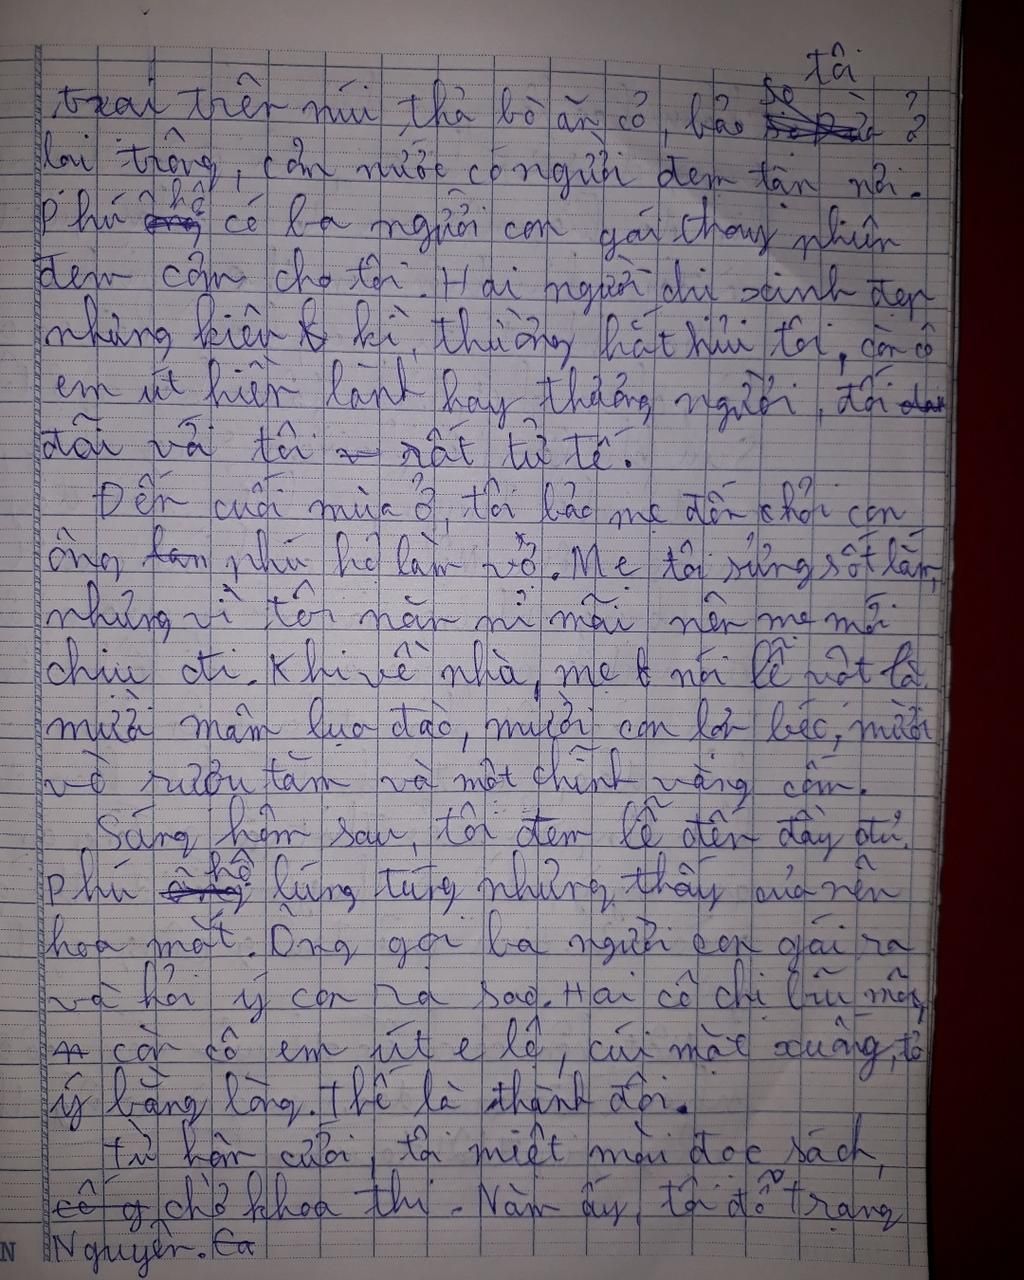 tôi
trai trên núi thả bò ăn cỏ, bảo ở
lại trông, cơm nước có người đem tận nơi.
Phú hộ có ba người con gái thay phiên
đem cơm cho tôi. Hai người chị xinh đẹp
nhưng kiêu kì, thường hắt hủi tôi, còn cô
em út hiền lành hay thương người, đối
đãi với tôi rất tử tế.
Đến cuối mùa ở, tôi bảo mẹ đến hỏi con
ông phú hộ làm vợ. Mẹ tôi sửng sốt lắm,
nhưng vì tôi năn nỉ mãi nên mẹ mới
chịu đi. Khi về nhà, mẹ nói lễ vật là
mười mâm lụa đào, mười con lợn béo, mười
vò rượu tăm và một chĩnh vàng cốm.
Sáng hôm sau, tôi đem lễ đến đầy đủ.
Phú hộ lúng túng nhưng thấy của nên
hoa mắt. Ông gọi ba người con gái ra
và hỏi ý con ra sao. Hai cô chị bĩu môi,
còn cô em út e lệ, cúi mặt xuống, tỏ
ý bằng lòng. Thế là thành đôi.
Từ hôm cưới, tôi miệt mài đọc sách,
chờ khoa thi. Năm ấy, tôi đỗ Trạng
Nguyên.
N